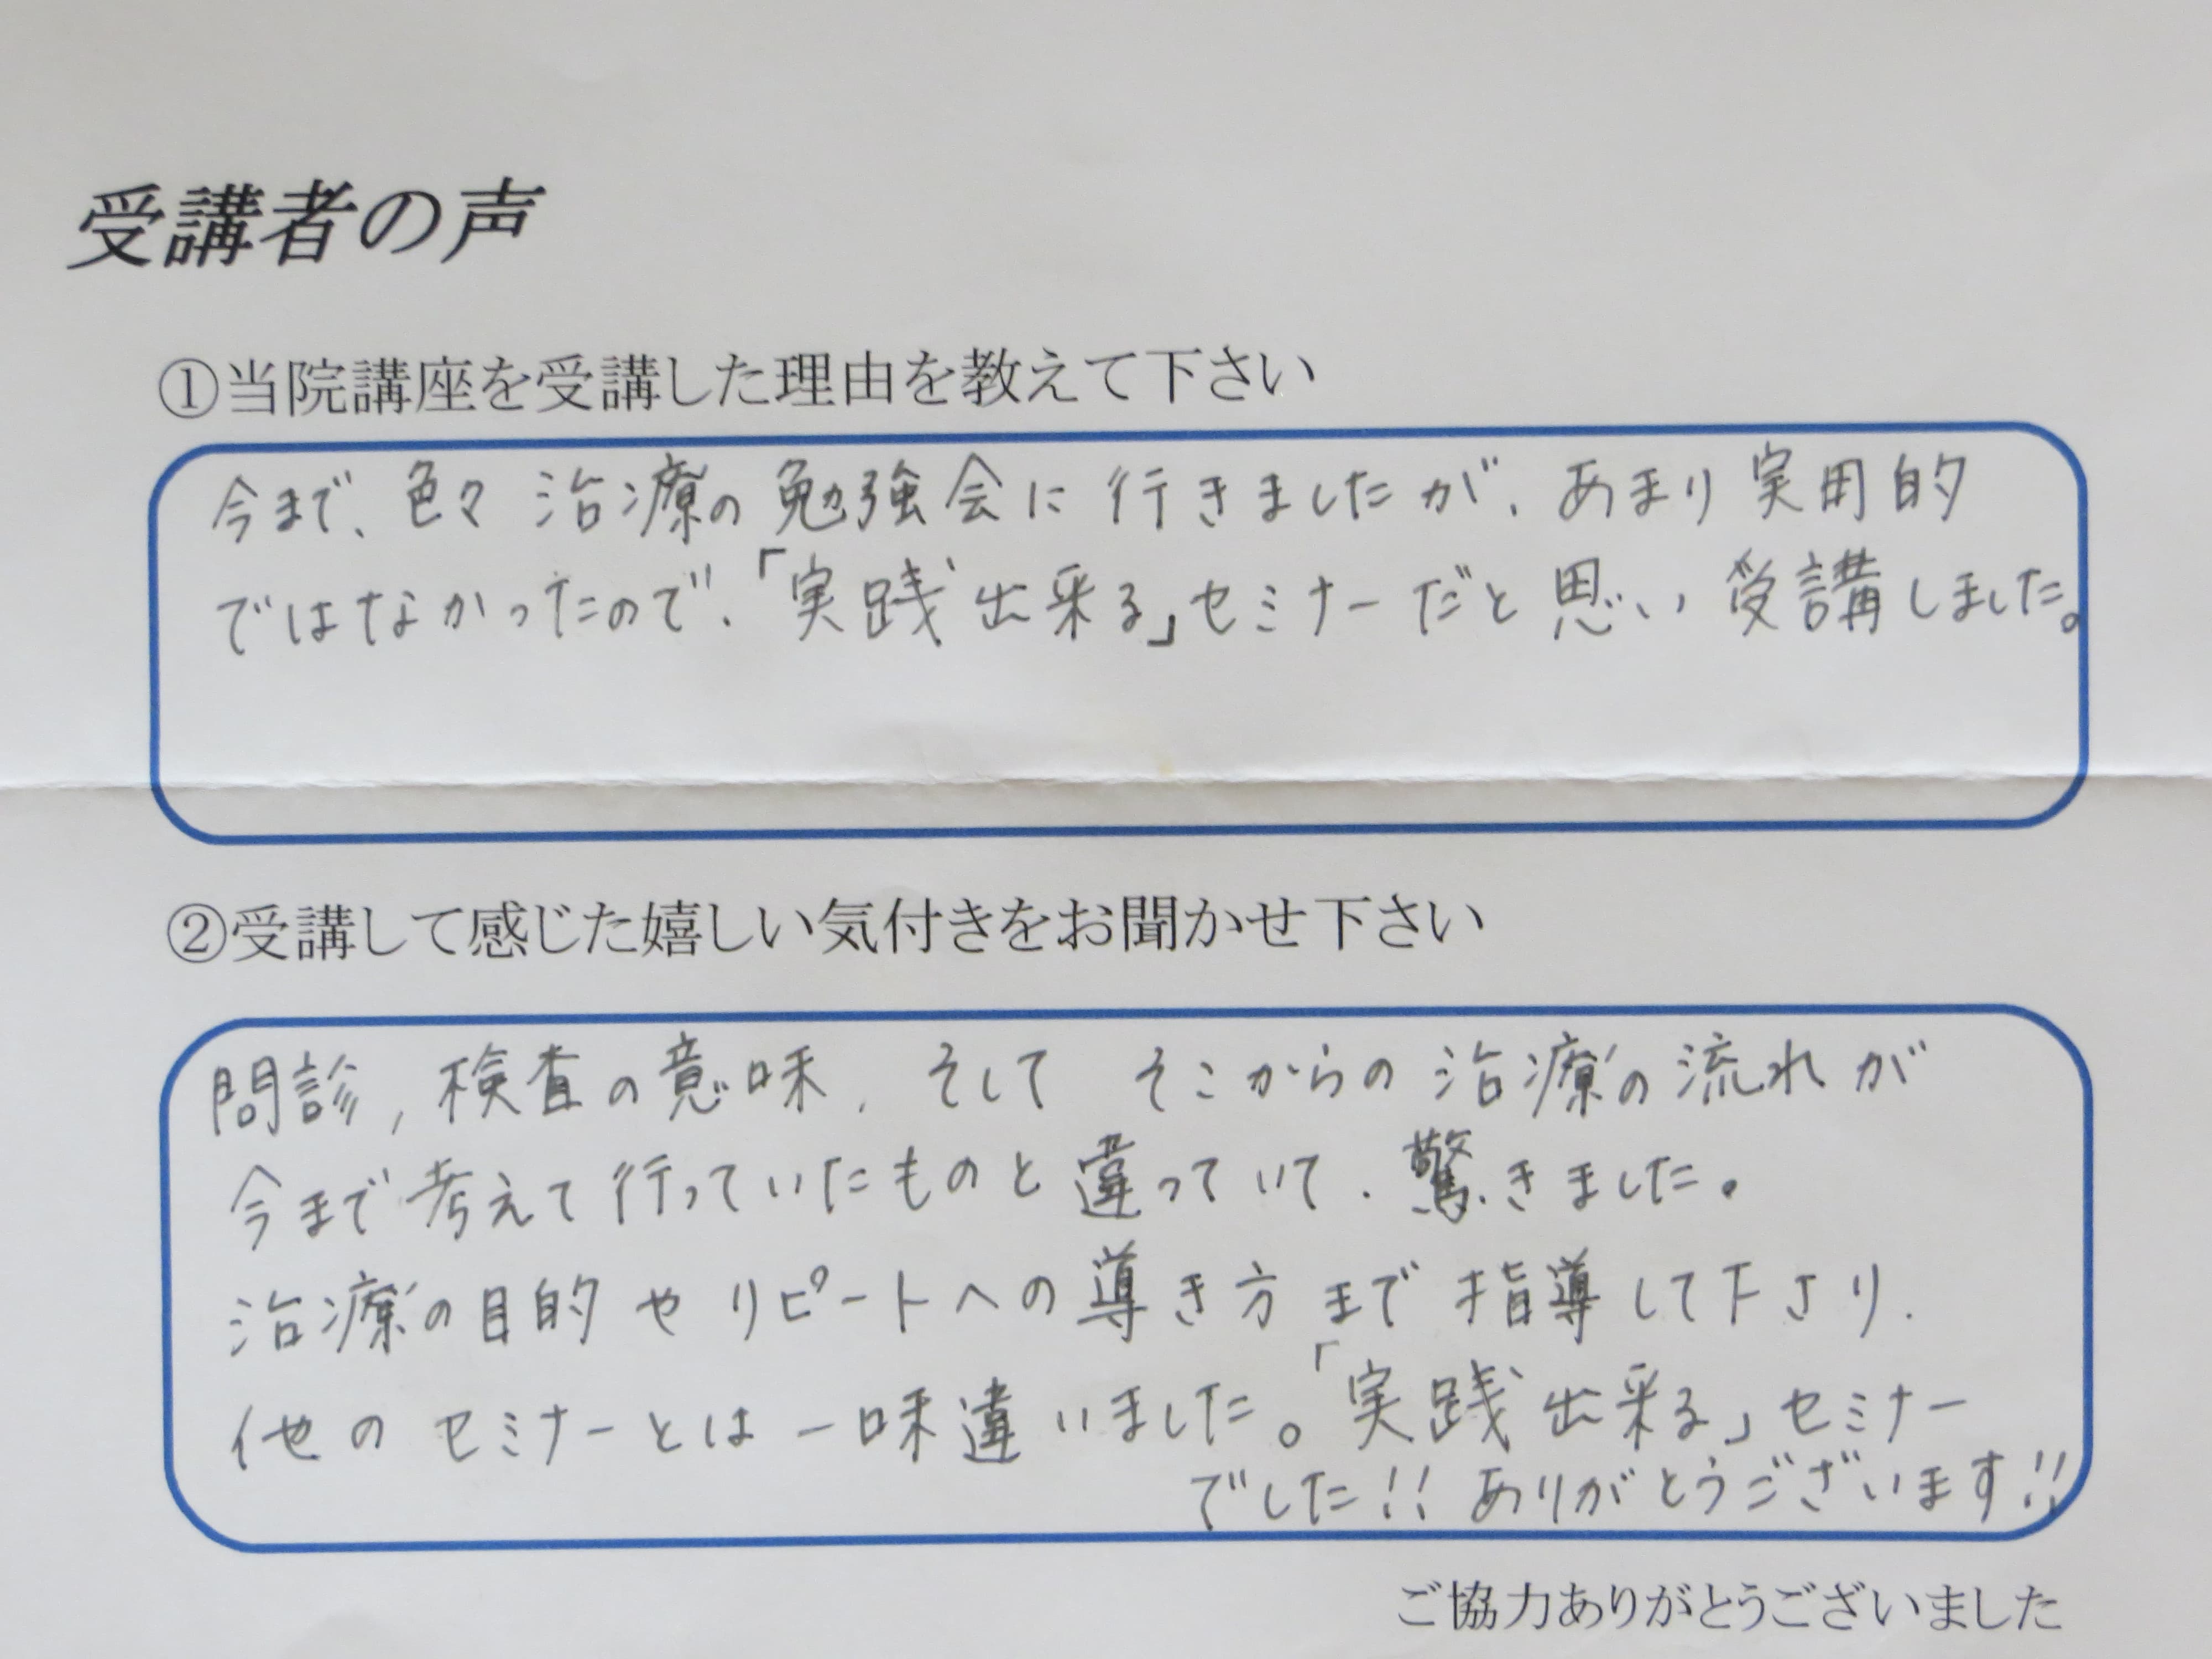 受講者の声
①当院講座を受講した理由を教えて下さい
今まで、色々治療の勉強会に行きましたが、あまり実用的
ではなかったので、「実践出来る」セミナーだと思い受講しました。
②受講して感じた嬉しい気付きをお聞かせ下さい
問診，検査の意味，そして そこからの治療の流れが
今まで考えて行っていたものと違っていて、驚きました。
治療の目的やリピートへの導き方まで指導して下さり、
他のセミナーとは一味違いました。「実践出来る」セミナー
でした!! ありがとうございます!!
ご協力ありがとうございました